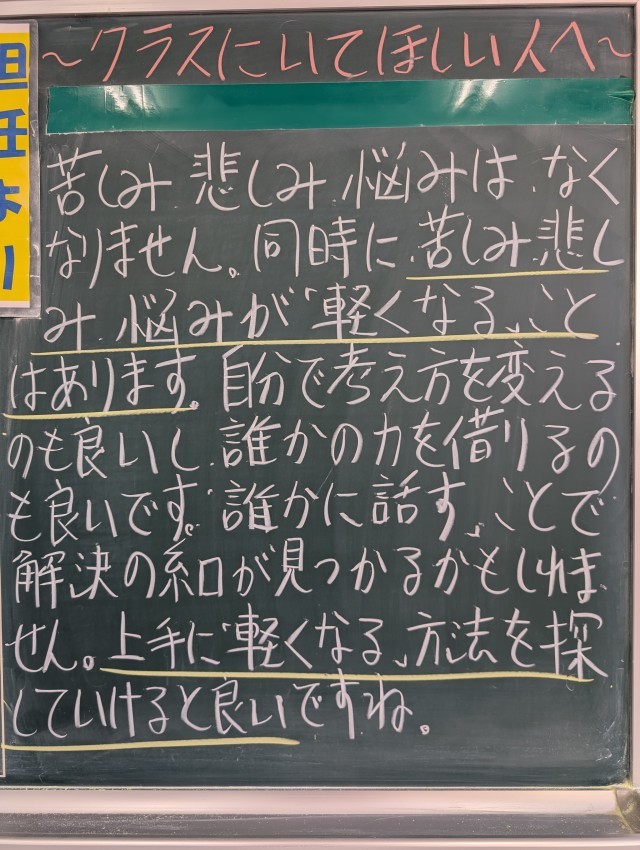 担任より
～クラスにいてほしい人へ～
苦しみ 悲しみ 悩みは、なく
なりません。同時に、苦しみ 悲し
み 悩みが“軽くなる„こと
はあります。自分で考え方を変える
のも良いし、誰かの力を借りるの
も良いです。“誰かに話す„ことで
解決の糸口が見つかるかもしれま
せん。上手に“軽くなる„方法を探
していけると良いですね。